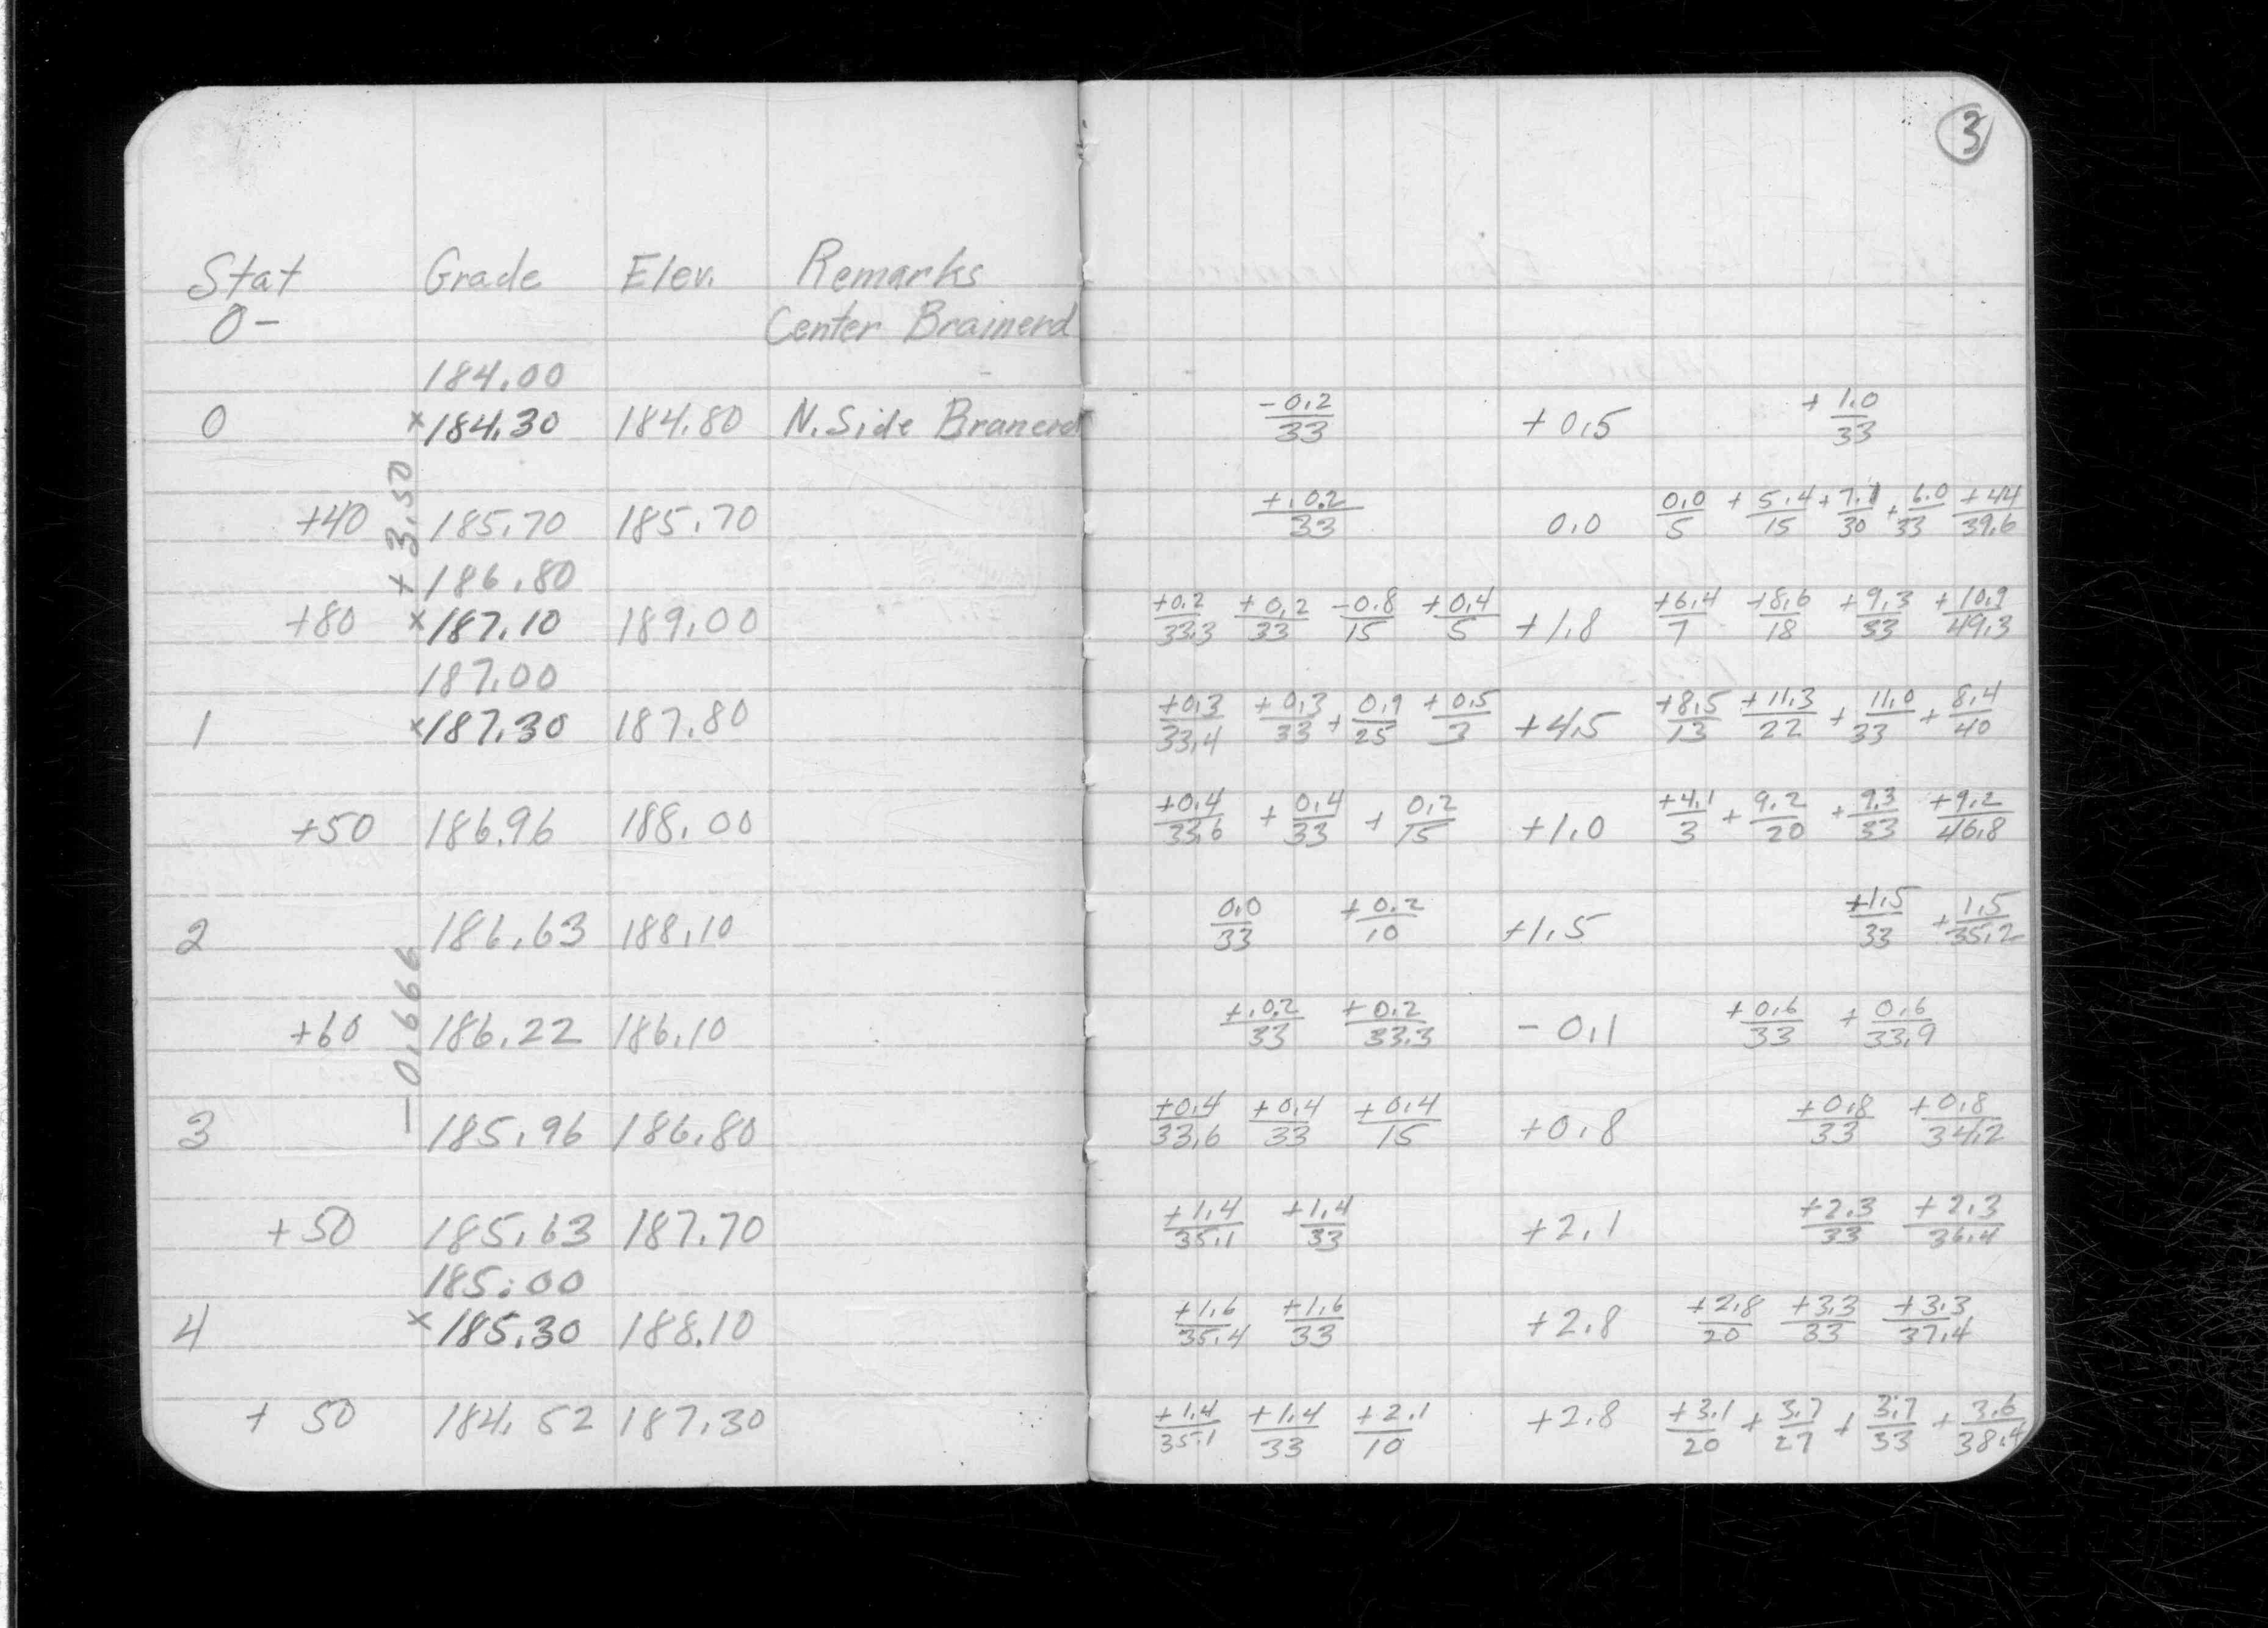 3
Stat Grade Elev. Remarks
0- Center Brainerd
184.00
0 x184.30 184.80 N. Side Branerd -0.2/33 +0.5 +1.0/33
+3.50
+40 185.70 185.70 +.0.2/33 0.0 0.0/5 +5.4/15 +7.1/30 +6.0/33 +44/39.6
186.80
+80 x187.10 189.00 +0.2/33.3 +0.2/33 -0.8/15 +0.4/5 +1.8 +6.4/7 +8.6/18 +9.3/33 +10.9/49.3
187.00
1 x187.30 187.80 +0.3/33.4 +0.3/33 +0.9/25 +0.5/3 +4.5 +8.5/13 +11.3/22 +11.0/33 +8.4/40
+50 186.96 188.00 +0.4/33.6 +0.4/33 +0.2/15 +1.0 +4.1/3 +9.2/20 +9.3/33 +9.2/46.8
2 186.63 188.10 0.0/33 +0.2/10 +1.5 +1.5/33 +1.5/35.2
-0.666
+60 186.22 186.10 +.0.2/33 +0.2/33.3 -0.1 +0.6/33 +0.6/33.9
3 185.96 186.80 +0.4/33.6 +0.4/33 +0.4/15 +0.8 +0.8/33 +0.8/34.2
+50 185.63 187.70 +1.4/35.1 +1.4/33 +2.1 +2.3/33 +2.3/36.4
185.00
4 x185.30 188.10 +1.6/35.4 +1.6/33 +2.8 +2.8/20 +3.3/33 +3.3/37.4
+50 184.52 187.30 +1.4/35.1 +1.4/33 +2.1/10 +2.8 +3.1/20 +3.7/27 +3.7/33 +3.6/38.4